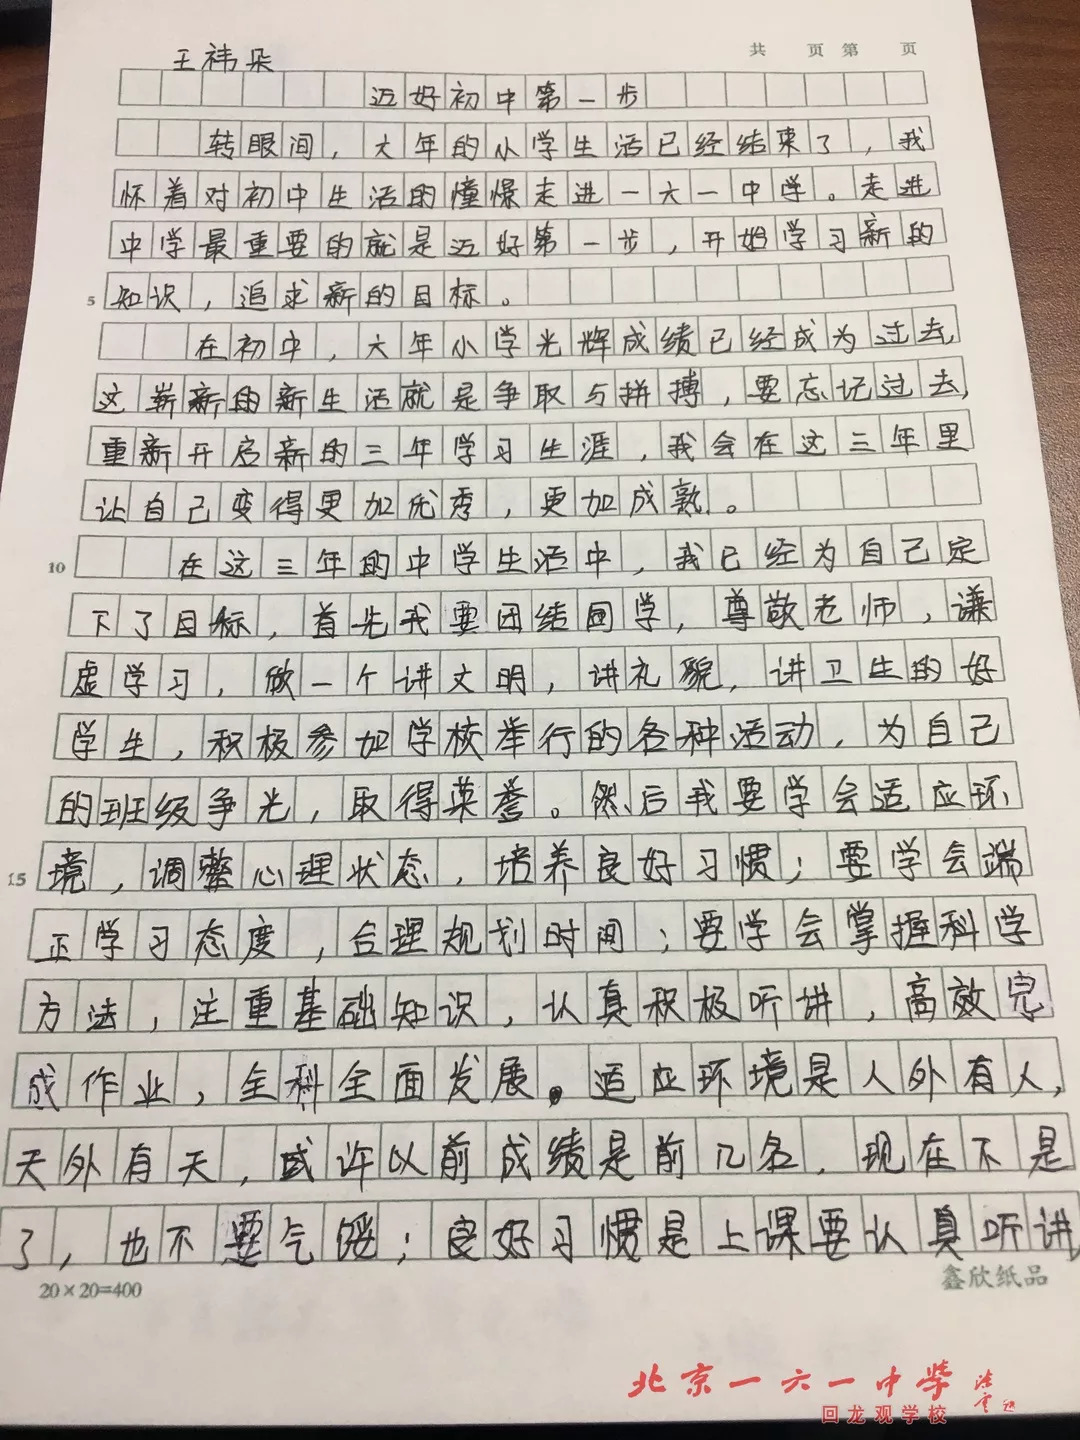 共 页 第 页
王祎朵
迈好初中第一步
转眼间，六年的小学生活已经结束了，我
怀着对初中生活的憧憬走进一六一中学。走进
中学最重要的就是迈好第一步，开始学习新的
5 知识，追求新的目标。
在初中，六年小学光辉成绩已经成为过去，
这崭新的新生活就是争取与拼搏，要忘记过去，
重新开启新的三年学习生涯，我会在这三年里
让自己变得更加优秀，更加成熟。
10 在这三年的中学生活中，我已经为自己定
下了目标，首先我要团结同学，尊敬老师，谦
虚学习，做一个讲文明，讲礼貌，讲卫生的好
学生，积极参加学校举行的各种活动，为自己
的班级争光，取得荣誉。然后我要学会适应环
15 境，调整心理状态，培养良好习惯；要学会端
正学习态度，合理规划时间；要学会掌握科学
方法，注重基础知识，认真积极听讲，高效完
成作业，全科全面发展。适应环境是人外有人，
天外有天，或许以前成绩是前几名，现在不是
了，也不要气馁；良好习惯是上课要认真听讲
20×20=400
鑫欣纸品
北京一六一中学
回龙观学校